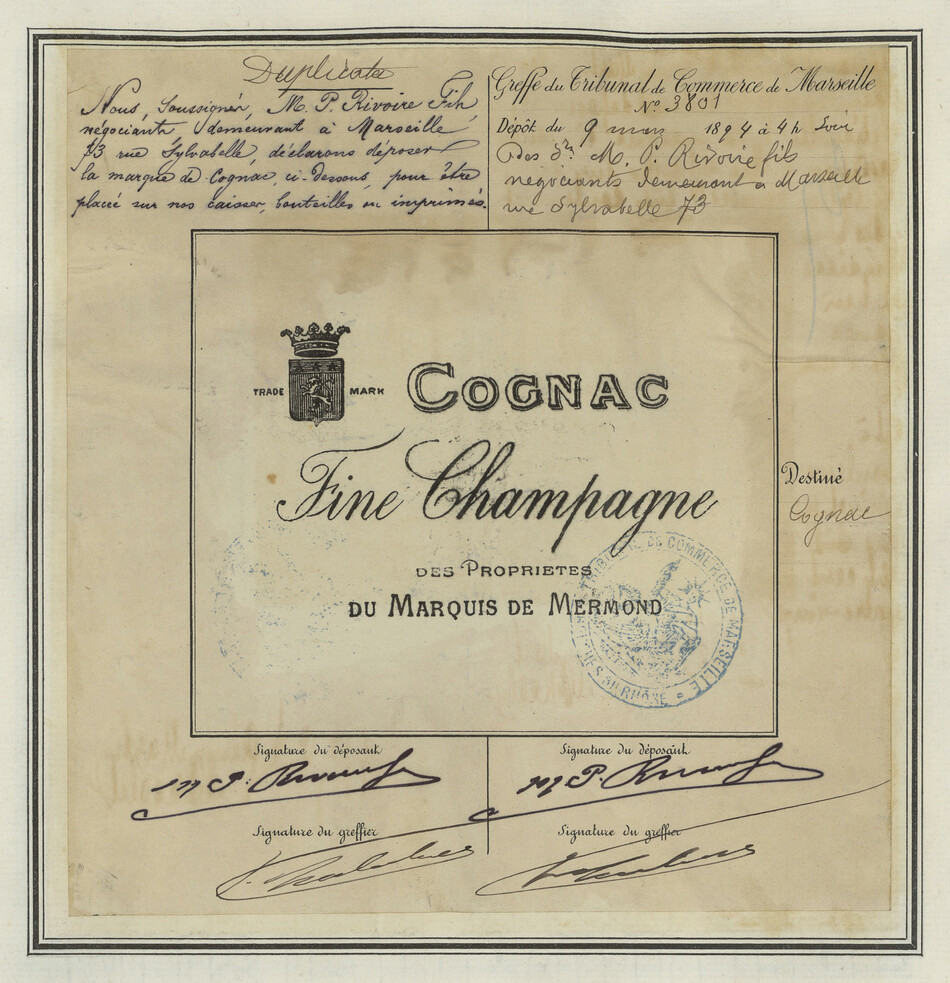 Duplicata
Nous, soussignés, M. P. Rivoire Fils
négociants demeurant à Marseille
73 rue Sylvabelle, déclarons déposer
la marque de Cognac, ci-dessous, pour être
placée sur nos caisses, bouteilles ou imprimés.
Greffe du Tribunal de Commerce de Marseille
N° 3801
Dépôt du 9 mars 1894 à 4h Soir
des Srs M. P. Rivoire fils
negociants demeurant a Marseille
rue Sylvabelle 73
TRADE MARK
COGNAC
Fine Champagne
DES PROPRIETES
DU MARQUIS DE MERMOND
Destiné
Cognac
TRIBUNAL DE COMMERCE DE MARSEILLE
DU RHÔNE
Signature du déposant
M. P. Rivoire fils
Signature du déposant
M. P. Rivoire fils
Signature du greffier
Signature du greffier